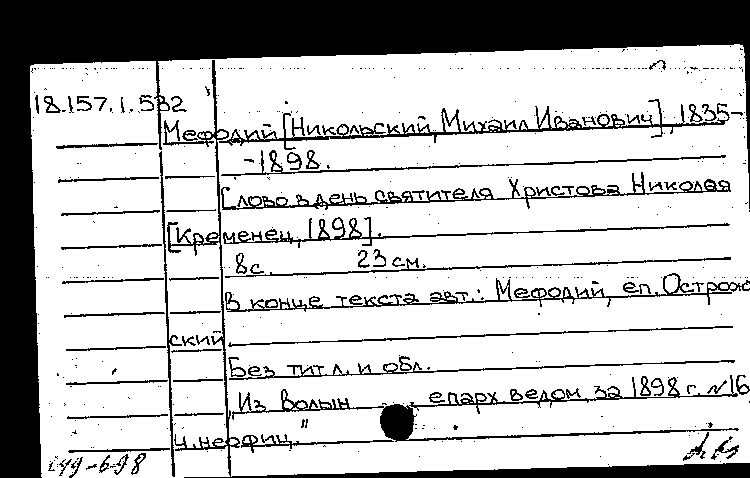 18.157.1.532
Мефодий [Никольский, Михаил Иванович], 1835-
-1898.
Слово в день святителя Христова Николая
[Кременец, 1898].
8с. 23 см.
В конце текста авт.: Мефодий, еп. Острож
ский.
Без тит. л. и обл.
"Из Волын . епарх. ведом. за 1898 г. №16
ч. неофиц."